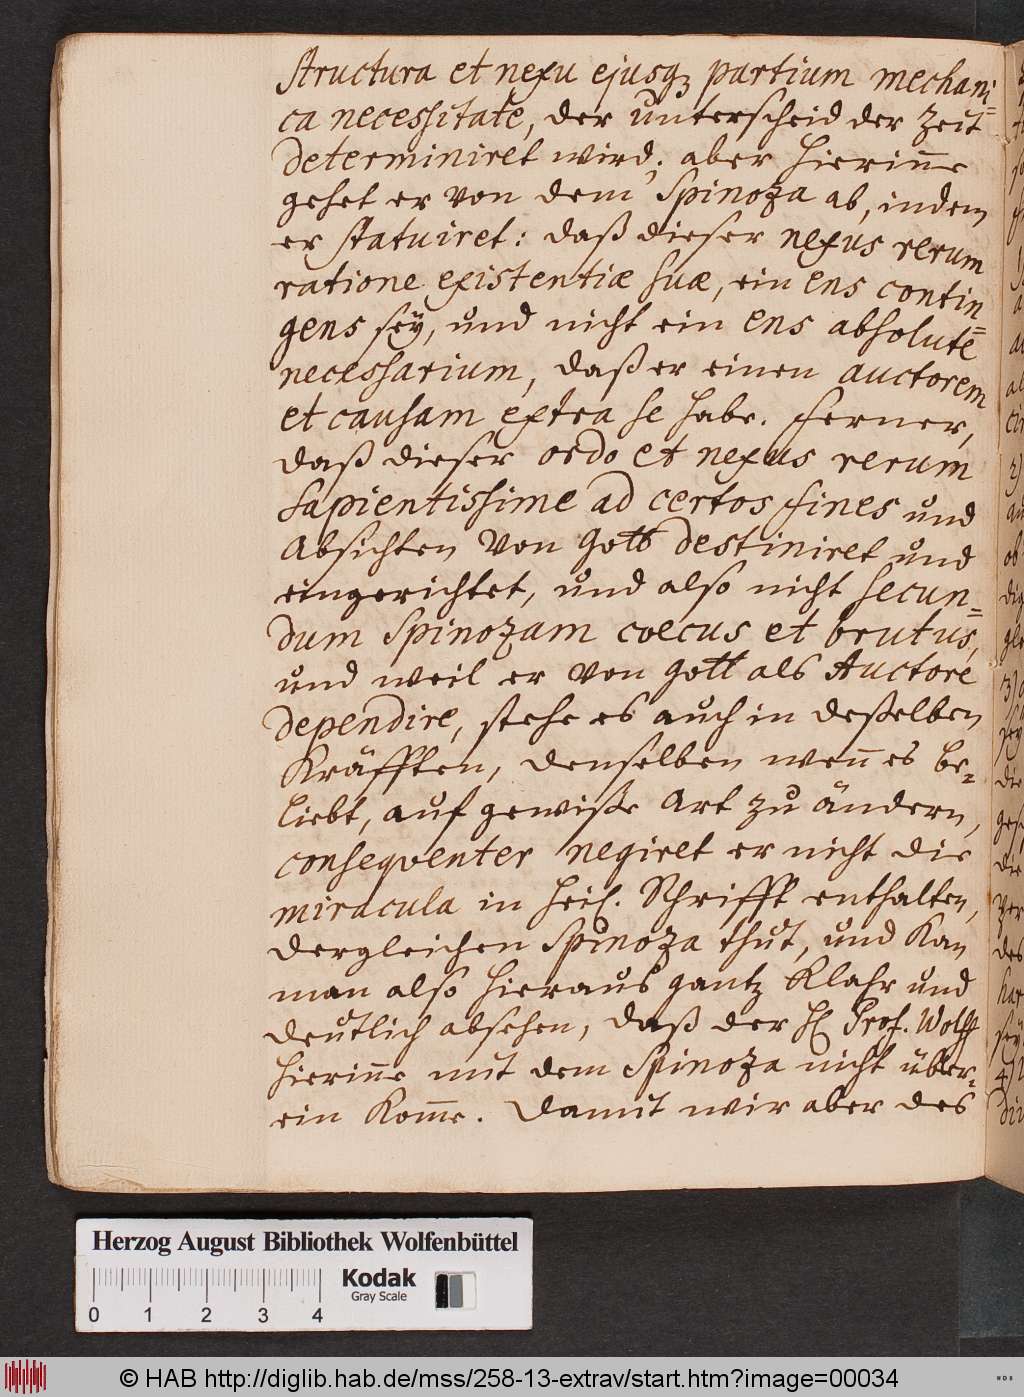 structura et nexu ejusq; partium mechani=
ca necessitate, der unterscheid der Zeit
determiniret wird; aber hierin̄e
gehet er von dem Spinoza ab, indem
er statuiret: daß dieser nexus rerum
ratione existentiæ suæ, ein ens contin=
gens sey, und nicht ein ens absolute
necessarium, daß er einen auctorem
et causam extra se habe. ferner,
daß dieser ordo et nexus rerum
sapientissime ad certos fines und
Absichten von Gott destiniret und
eingerichtet, und also nicht secun=
dum Spinozam coecus et brutus,
und weil er von Gott als Auctore
dependire, stehe es auch in deßelben
Kräfften, denselben wen̄ es be=
liebt, auf gewiße Art zu ändern,
conseqventer negiret er nicht die
miracula in Heil. Schrifft enthalten,
dergleichen Spinoza thut, und Kan
man also hieraus gantz Klahr und
deutlich absehen, daß der H. Prof. Wolff
hierin̄e mit dem Spinoza nicht über=
ein Kom̄e. Damit wir aber des
Herzog August Bibliothek Wolfenbüttel
Kodak
Gray Scale
0 1 2 3 4
© HAB http://diglib.hab.de/mss/258-13-extrav/start.htm?image=00034